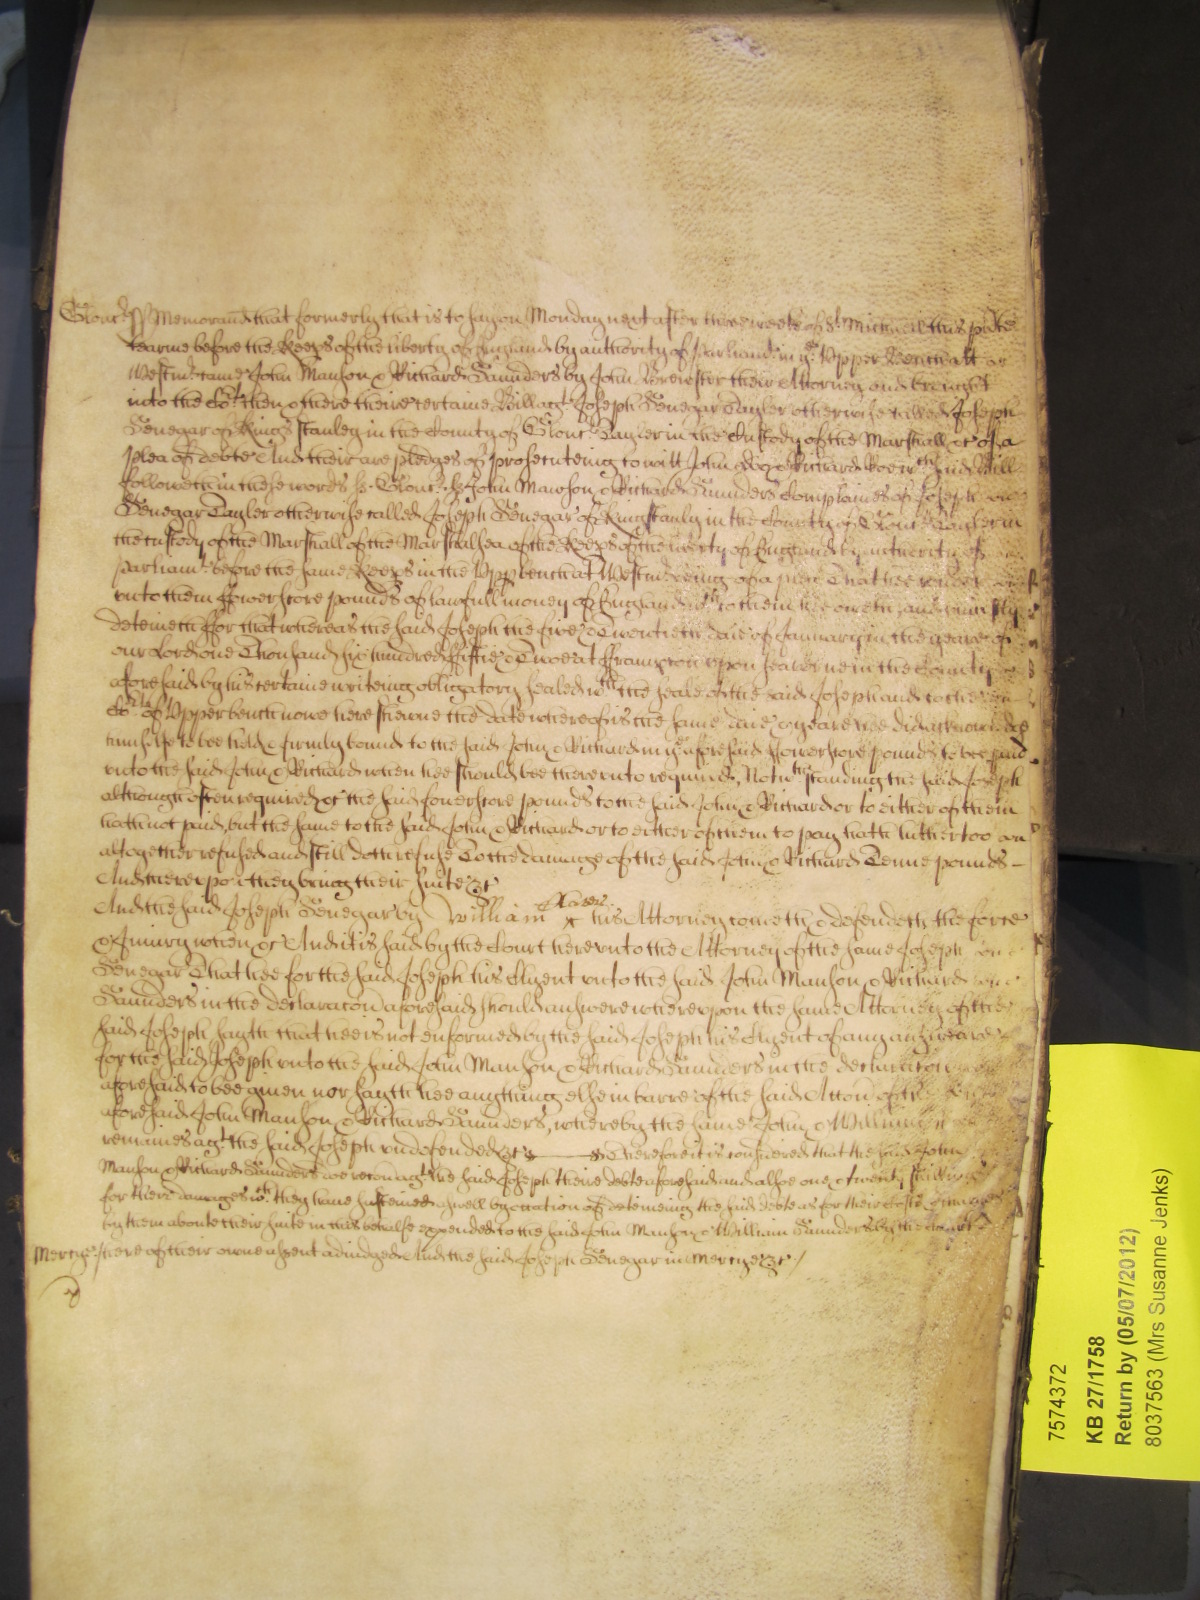 Glouc ss Memorand that formerly that is to say on Monday next after three weeks of St Michaell this p̱sente
tearme before the Keeps of the liberty of England by authority of Parliamt in ye Upper bench att
Westmr came John Manson & Richard Saunders by John Brewster their Attorney and brought
into the Cort then & there their certaine Bill agt Joseph Senegar Tayler otherwise called Joseph
Senegar of Kings Stanley in the County of Gloucr Tayler in the Custody of the Marshall &c of a
plea of debte And their are pledges of prosecuteing to witt John Doe & Richard Roe wch said Bill
followeth in these words ss Gloucr ss John Manson & Richard Saunders Complaines of Joseph
Senegar Tayler otherwise called Joseph Senegar of Kingstanly in the County of Gloucr Tayler in
the custody of the Marshall of the Marshallsea of the Keeps of the liberty of England by authority of
Parliamt before the same Keeps in the Upp bench att Westmr being of a plea That hee render
unto them ffowerscore pounds of lawfull money of England wch to them hee oweth and uniustly
deteineth ffor that whereas the said Joseph the five & Twentieth daie of January in the yeare of
our Lord one Thousand six hundred ffiftie & Two att fframpton upon Seaverne in the County
aforesaid by his certaine writeing obligatory sealed wth the seale of the said Joseph and to the
Cort of Upper bench nowe here shewne the date whereof is the same daie & yeare hee did acknowledge
himselfe to bee held & firmly bound to the said John & Richard in ye aforesaid ffowerscore pounds to bee paid
unto the said John & Richard when hee should bee thereunto required, Notwthstanding the said Joseph
although often required &c the said fowerscore pounds to the said John & Richard or to either of them
hath not paid, but the same to the said John & Richard or to either of them to pay hath hithertoo
altogether refused and still doth refuse To the damage of the said John & Richard Tenne pounds
And thereupon they bring their suite &c
And the said Joseph Senegar by William his Attorney cometh & defendeth the force
& Iniury when &c And it is said by the Court here unto the Attorney of the same Joseph
Senegar That hee for the said Joseph his Clyent unto the said John Manson & Richard
Saunders in the declaracon aforesaid should answere whereupon the same Attorney of the
said Joseph sayth that hee is not enformed by the said Joseph his Clyent of any answeare
for the said Joseph unto the said John Manson & Richard Saunders in the declaracon
aforesaid to bee given nor sayth hee anything else in barre of the said Accon of the
aforesaid John Manson & Richard Saunders, whereby the same John & William
remaines agt the said Joseph undefended &c Therefore it is considered that the said John
Manson & Richard Saunders doe recou agt the said Joseph theire debte aforesaid and alsoe one & twenty shillings
for their damages wch they have susteined aswell by occasion of deteineing the said debte as for their Costs
by them aboute their suite in this behalfe expended to the said John Manson & William Saunders by the Court
Mercye here of their owne assent adiudged And the said Joseph Senegar in Mercye &c
7574372
KB 27/1758
Return by (05/07/2012)
8037563 (Mrs Susanne Jenks)